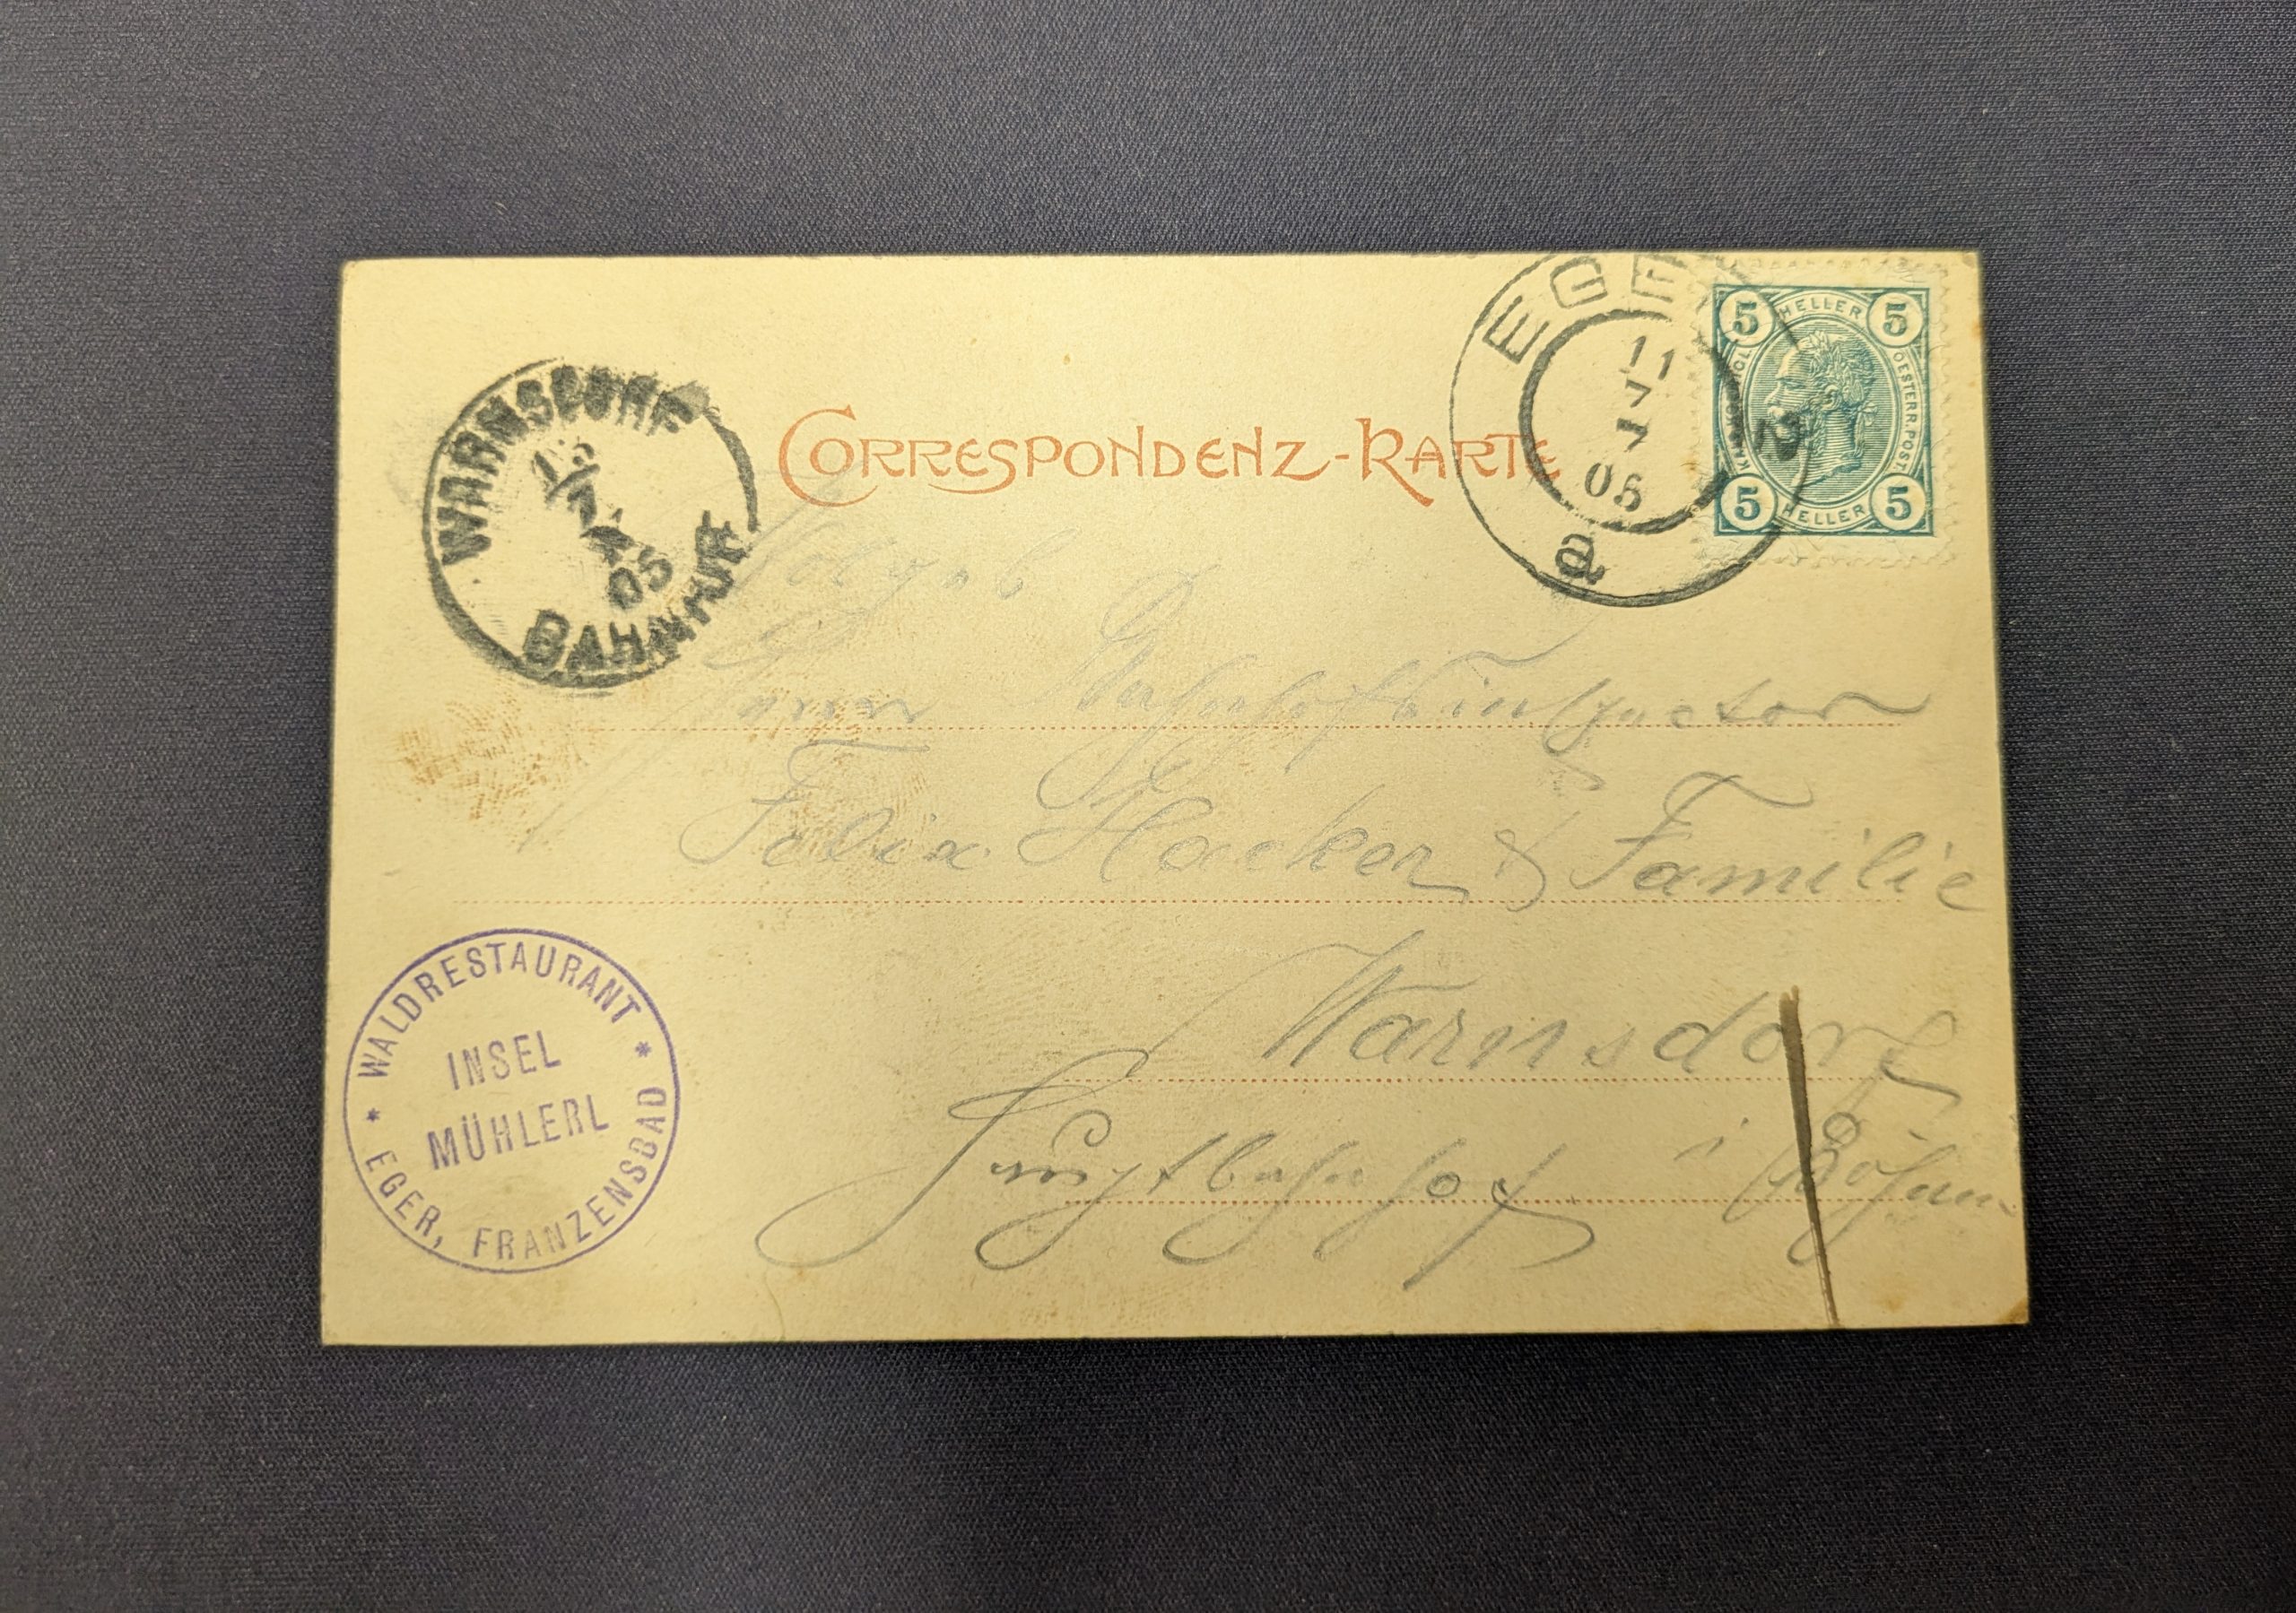 WARNSDORF
13
7
05
BAHNHOF
CORRESPONDENZ-KARTE
EGER
11
7
05
a
5 HELLER 5
OESTERR. POST
5 HELLER 5
Herrn Bahnhofsinspector
Felix Hacker & Familie
Warnsdorf
Hauptbahnhof i Böhmen
* WALDRESTAURANT *
INSEL
MÜHLERL
EGER, FRANZENSBAD